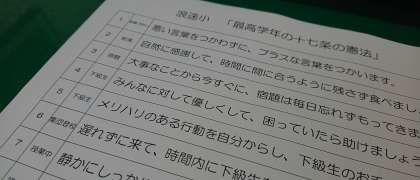 浪速小 「最高学年の十七条の憲法」
1 悪い言葉をつかわずに、プラスな言葉をつかいます。
2 自然に感謝して、時間に間に合うように残さず食べまし
3 大事なことから今すぐに、宿題は毎日忘れずもってきま
4 下級生 みんなに対して優しくして、困っていたら助けましょ
5 下級生 メリハリのある行動を自分からし、下級生のお
6 集団登校 遅れずに来て、時間内に下級生
7 授業中 静かにしっか